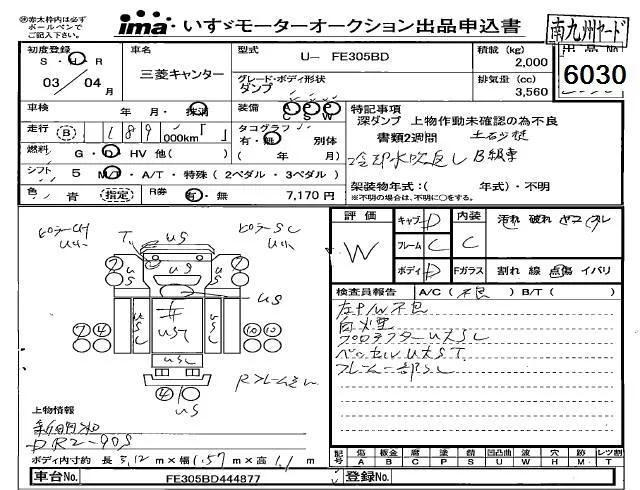 ※赤太枠内は必ず
ボールペンで
ご記入下さい。
ima いすゞモーターオークション出品申込書
南九州ヤード
初度登録
S・H・R
03/04月
車名
三菱キャンター
型式
U- FE305BD
積載 (kg)
2,000
出品No
6030
グレード・ボディ形状
ダンプ
排気量 (cc)
3,560
車検
年 月・抹消
装備
A P A
C S W
特記事項
深ダンプ 上物作動未確認の為不良
書類2週間 土石ダンプ
冷却水吹返し B級車
走行 (B) 189,000km「 」
タコグラフ
有・無 別体
( 年 月)
燃料
G・D・HV 他( )
シフト
5 MT・A/T・特殊 (2ペダル・3ペダル)
架装物年式:( 年式)・不明
※不明の場合は、不明に○をする。
色
青 (指定)
R券
有・無 7,170 円
評価
W
キャブ D
フレーム C
ボディ D
内装
C
汚れ 破れ ヤニ スレ
Fガラス
割れ 線 点傷 イバリ
検査員報告 A/C (不良) B/T ( )
左P/W不良
ベッセルU大S T
フレーム一部S C
T
US
US
US
US
UST
USC
④
US
⑦④
⑩⑩
上物情報
新明和
DR2-90S
ボディ内寸約 長 3.12 m×幅 1.57 m×高 1.1 m
記号
傷 板金 腐 塗 錆 凹凸曲 波 穴 跡 レツ割
A B C P S U W H M T
車台No.
FE305BD444877
登録No.